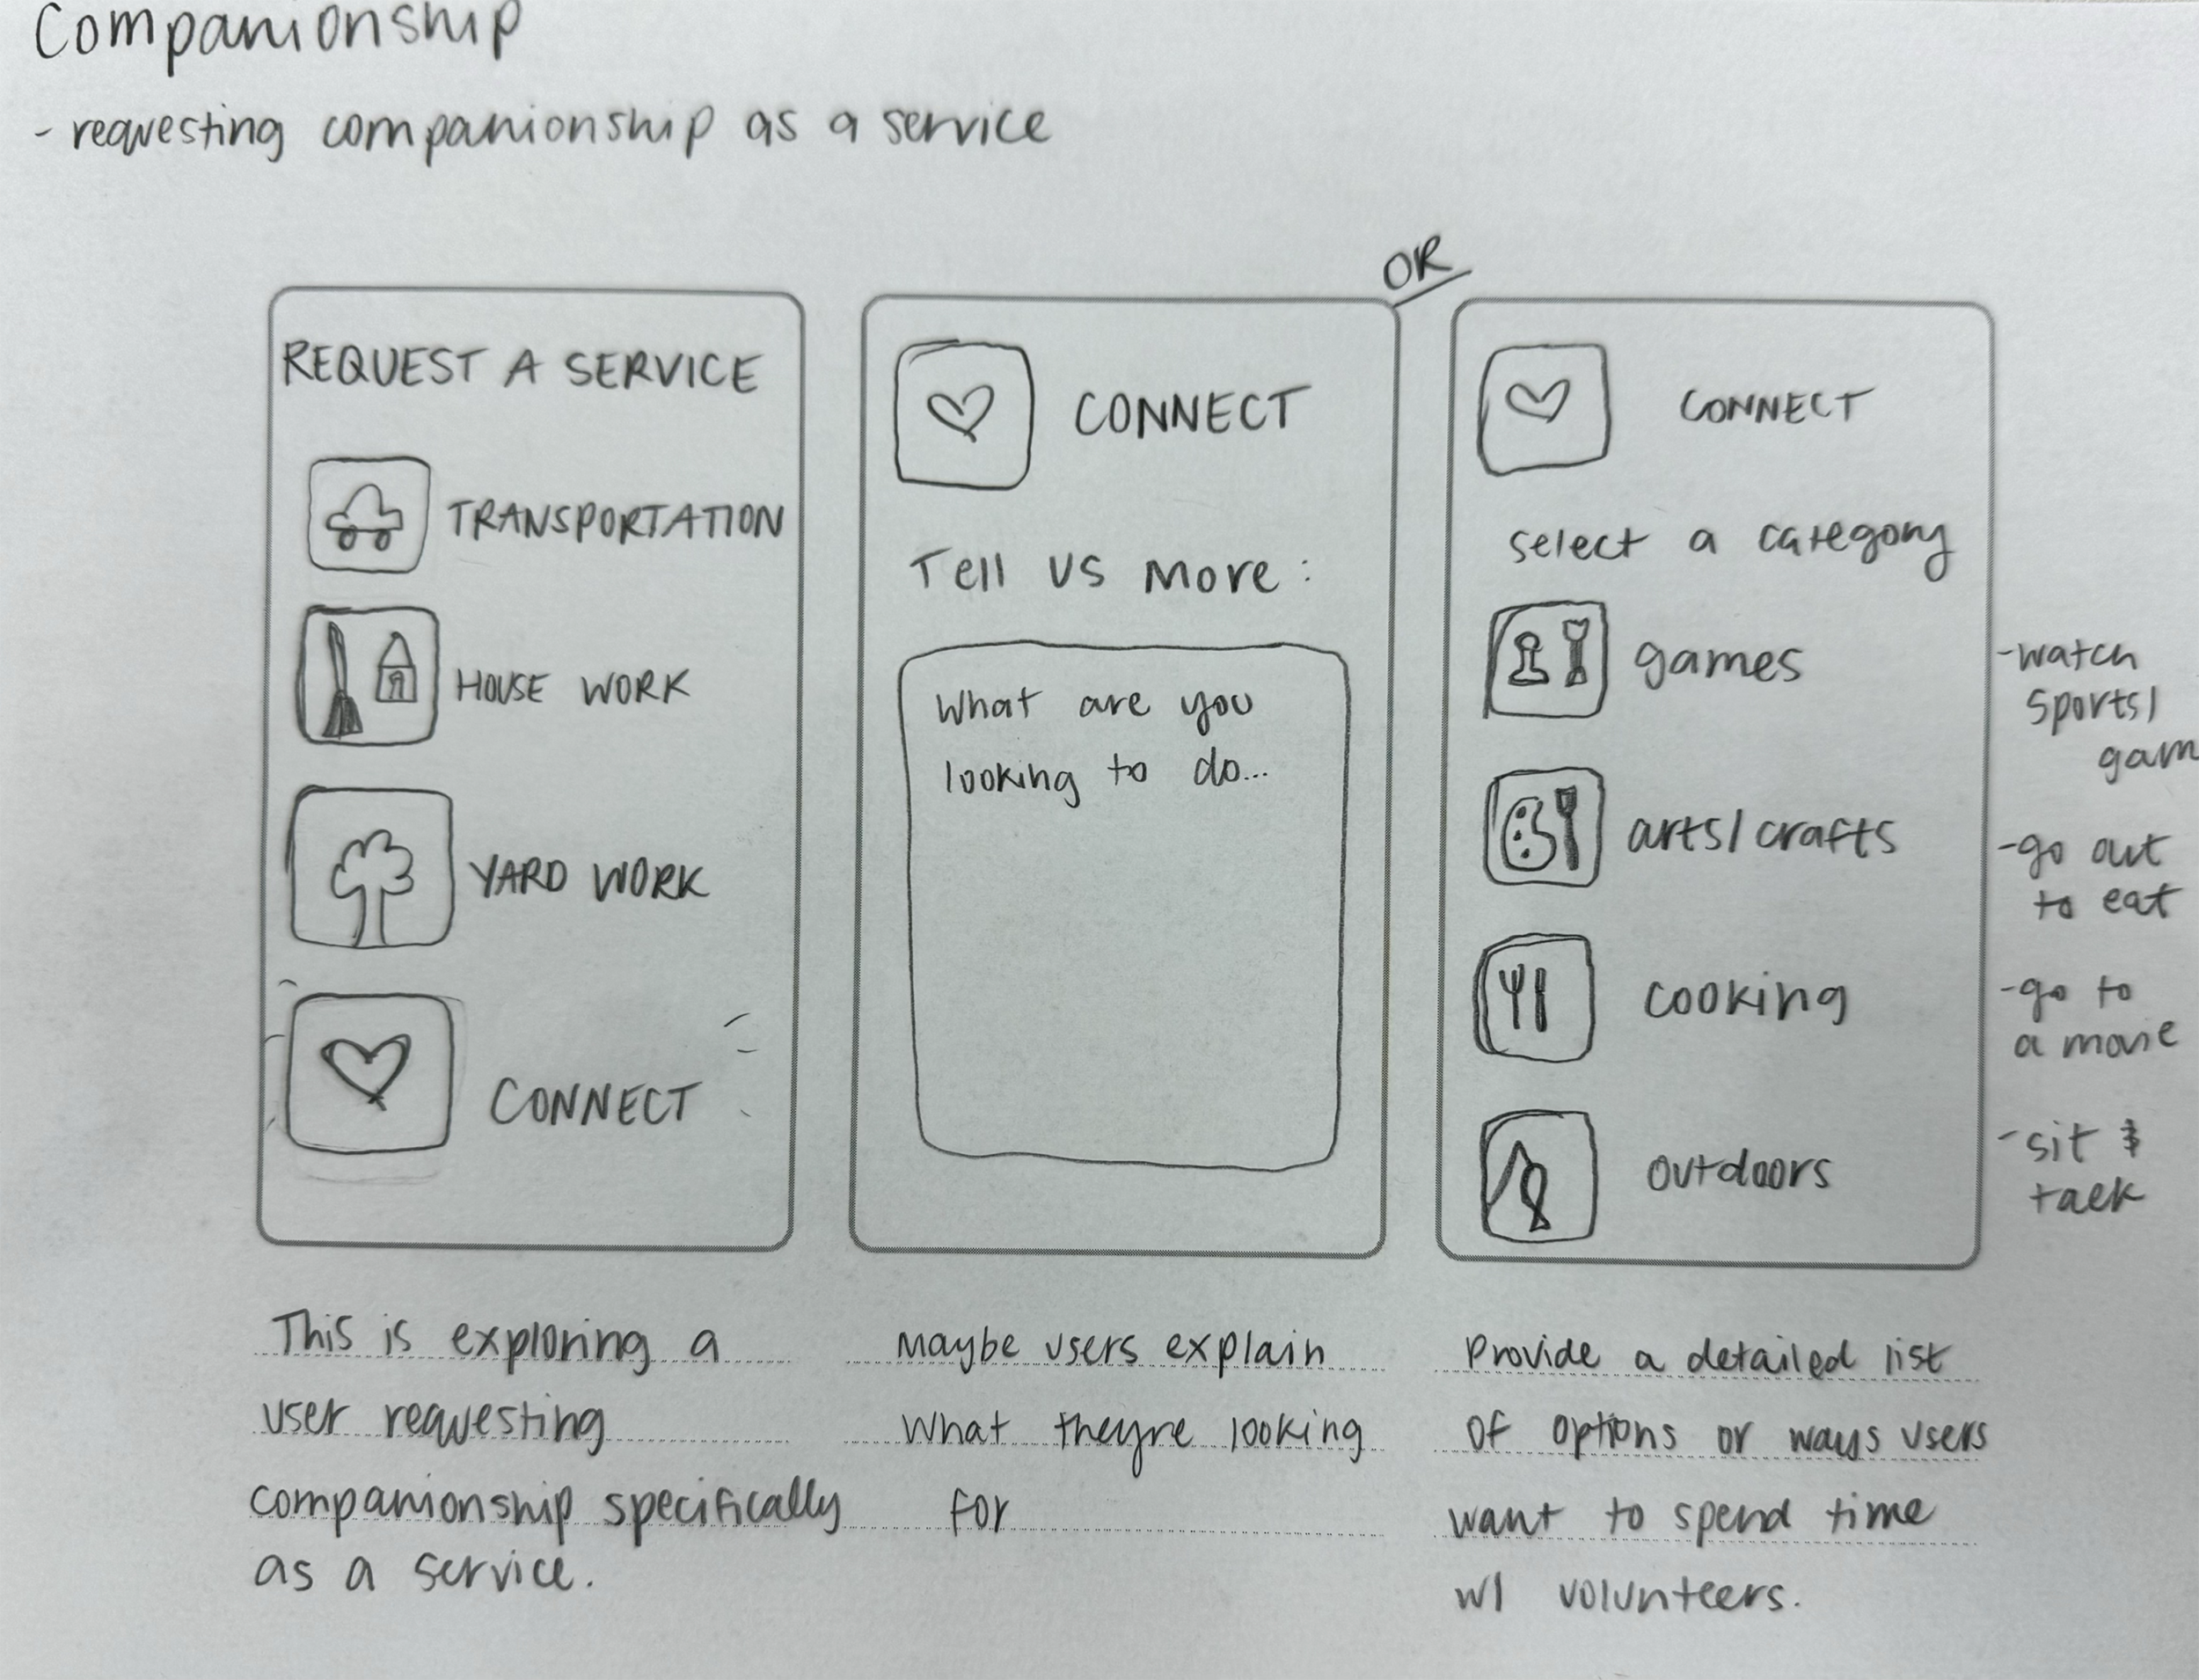 Companionship
- requesting companionship as a service
OR
REQUEST A SERVICE
TRANSPORTATION
HOUSE WORK
YARD WORK
CONNECT
This is exploring a
user requesting
companionship specifically
as a service.
CONNECT
Tell us more:
What are you
looking to do...
Maybe users explain
what theyre looking
for
CONNECT
select a category
games
arts/crafts
cooking
outdoors
-watch
sports/
gam
-go out
to eat
-go to
a movie
-sit &
talk
Provide a detailed list
of options or ways users
want to spend time
w/ volunteers.